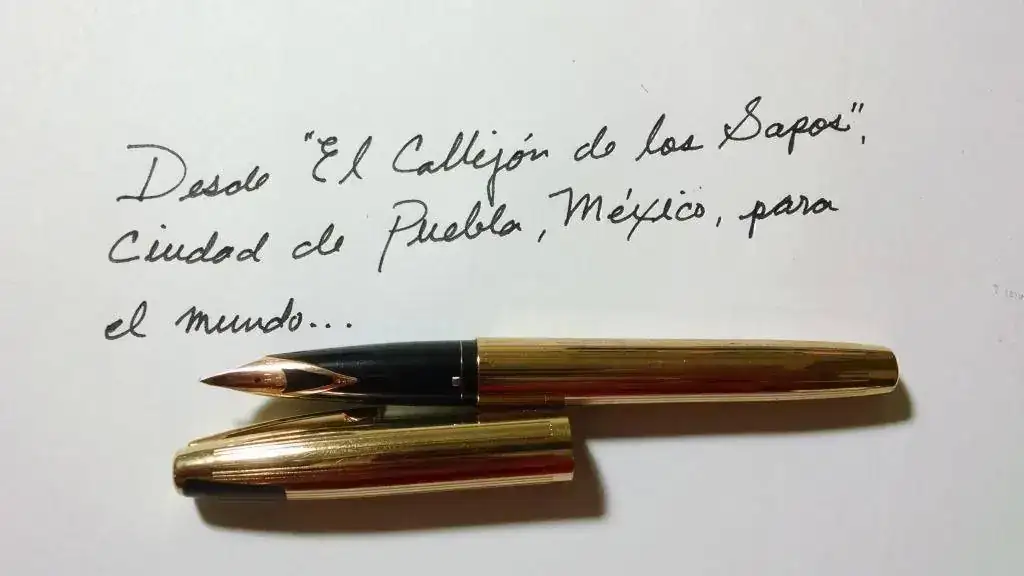 Desde "El Callejón de los Sapos",
Ciudad de Puebla, México, para
el mundo...